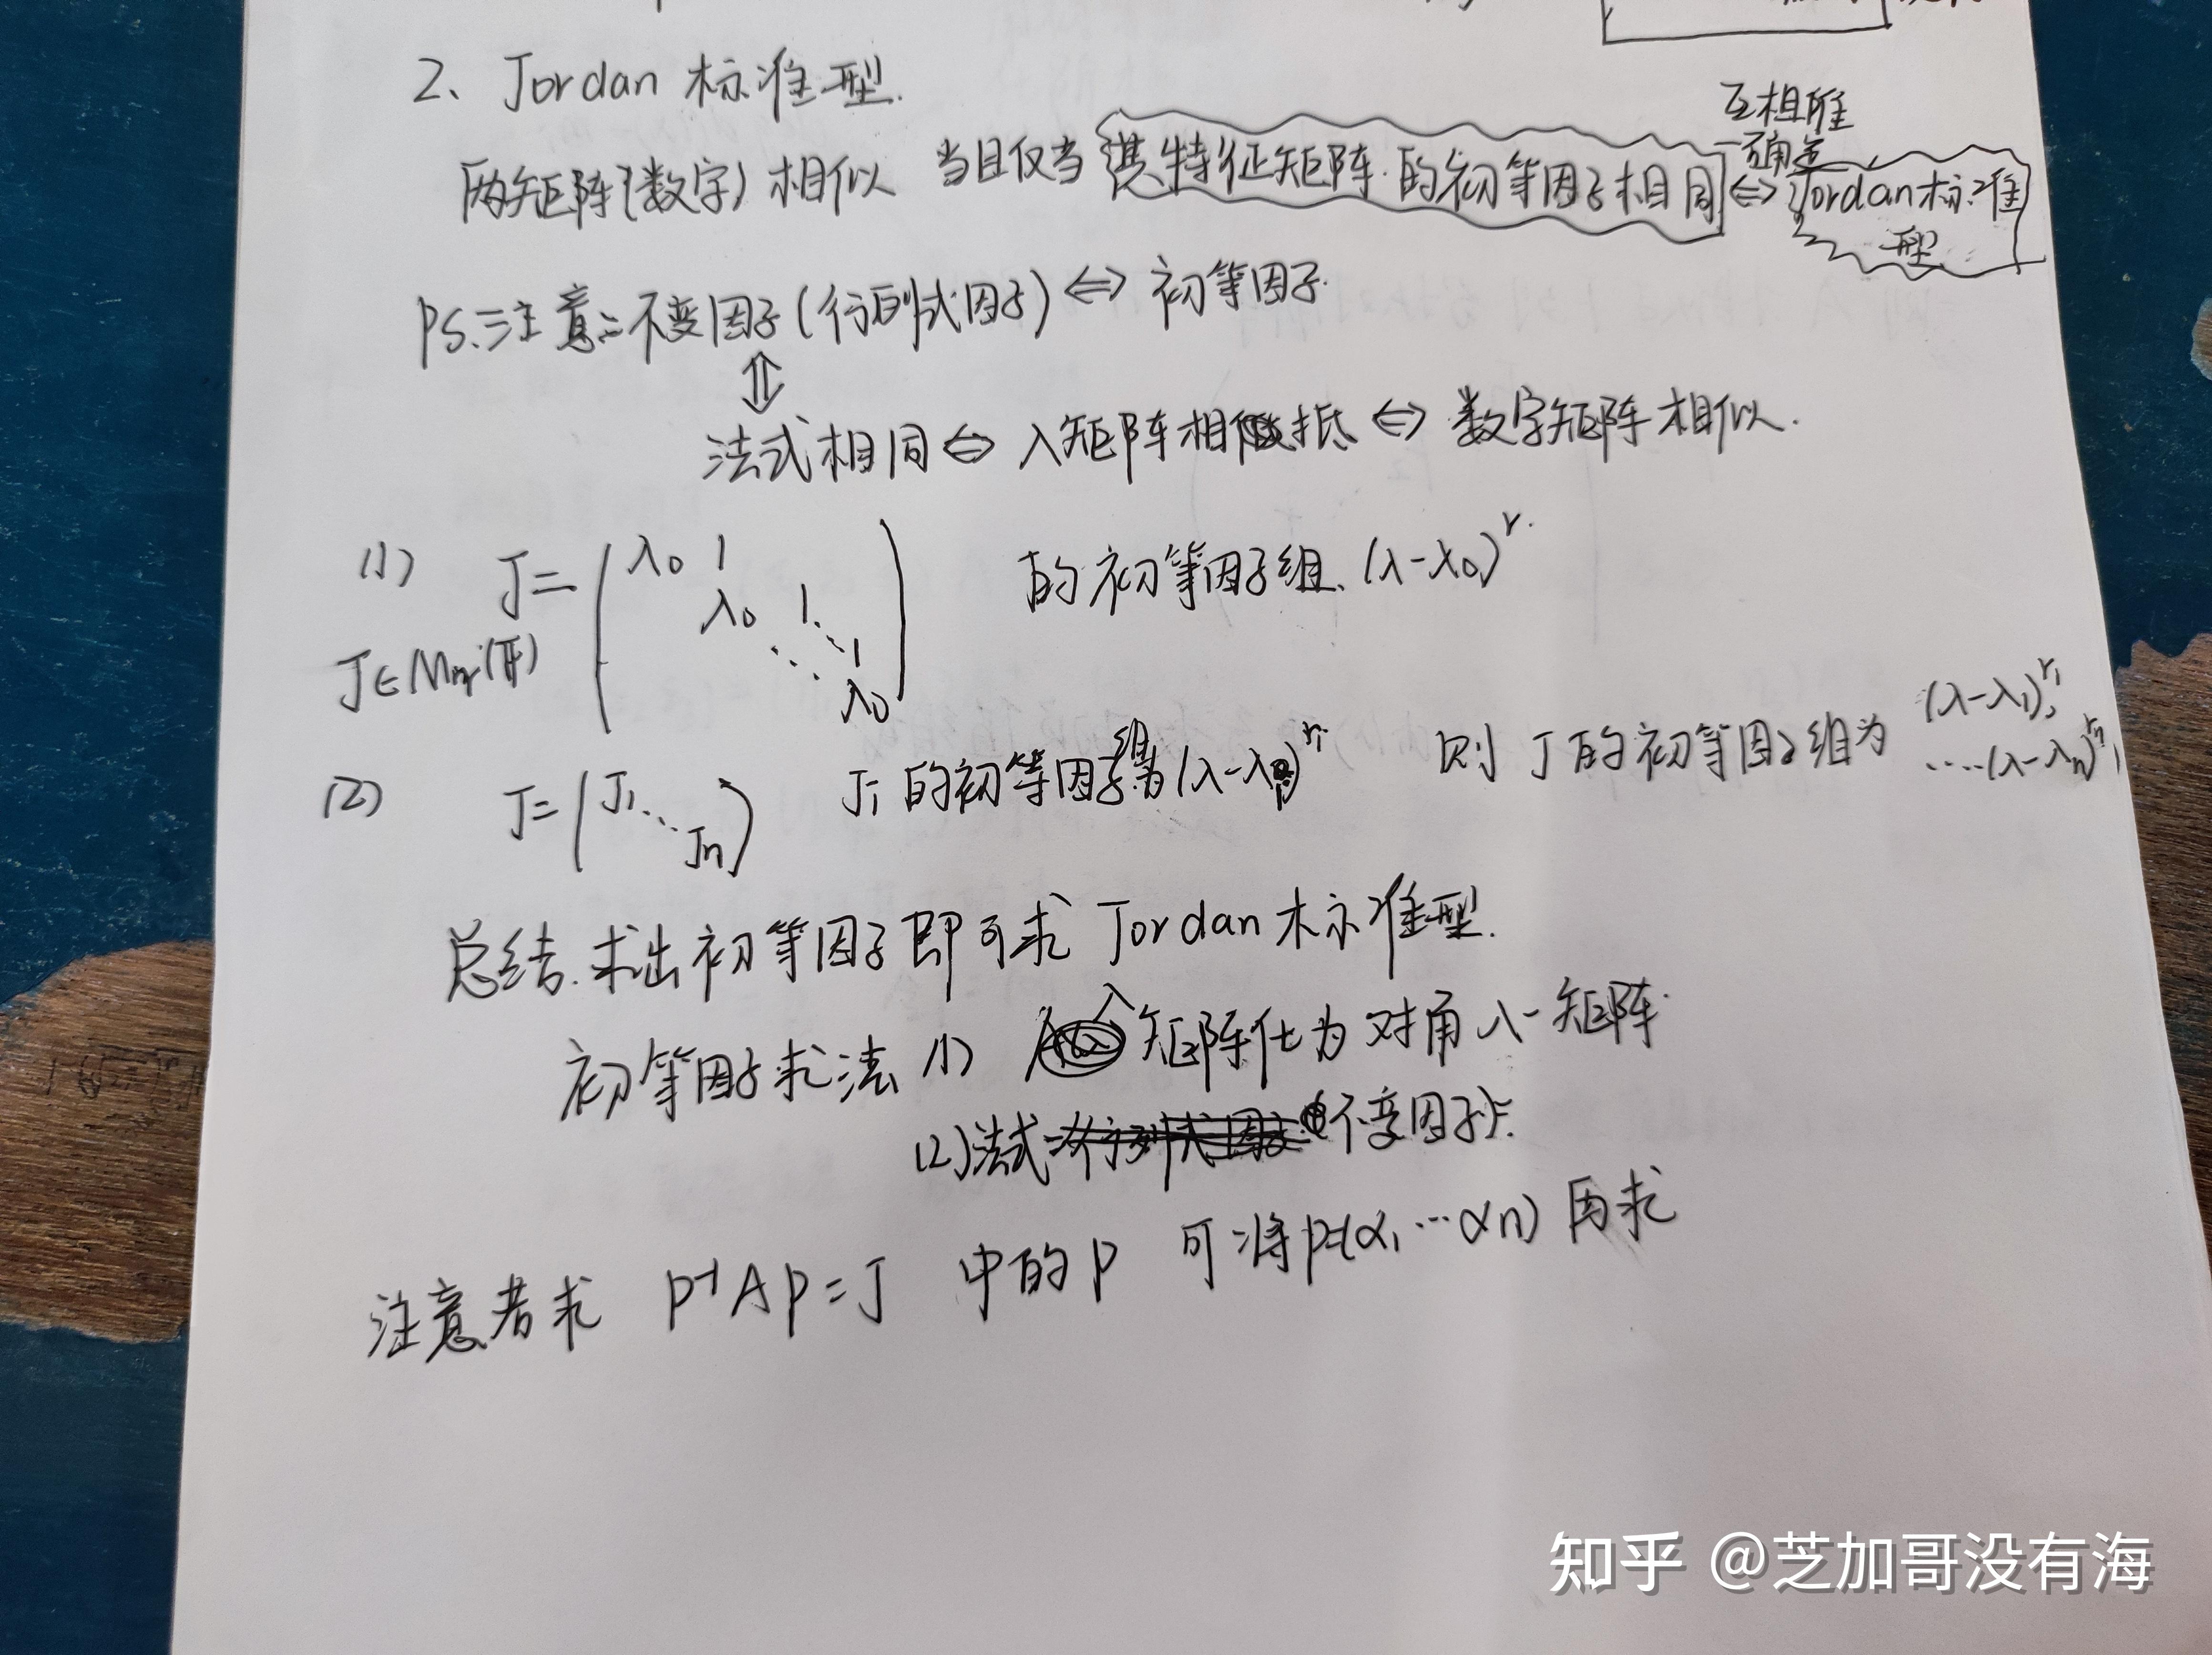 2、Jordan 标准型.
互相唯
一确定
两矩阵(数字)相似 当且仅当 其特征矩阵的初等因子相同 ⇔ Jordan标准
型
PS:注意:不变因子(行列式因子) ⇔ 初等因子.
⇕
法式相同 ⇔ λ矩阵相抵 ⇔ 数字矩阵相似.
(1) J = ( λ0 1 的初等因子组. (λ-λ0)^r.
λ0 1
⋱ ⋱ 1
J∈Mr(F) λ0 )
(2) J = ( J1 ⋱ Jn ) Ji 的初等因子组为 (λ-λi)^ri 则 J 的初等因子组为 (λ-λ1)^r1,
....(λ-λn)^rn
总结.求出初等因子即可求 Jordan 标准型.
初等因子求法 (1) λ矩阵化为对角λ-矩阵.
(2)法式 (不变因子).
注意若求 P^-1AP=J 中的P 可将P=(α1 ... αn) 再求
知乎 @芝加哥没有海